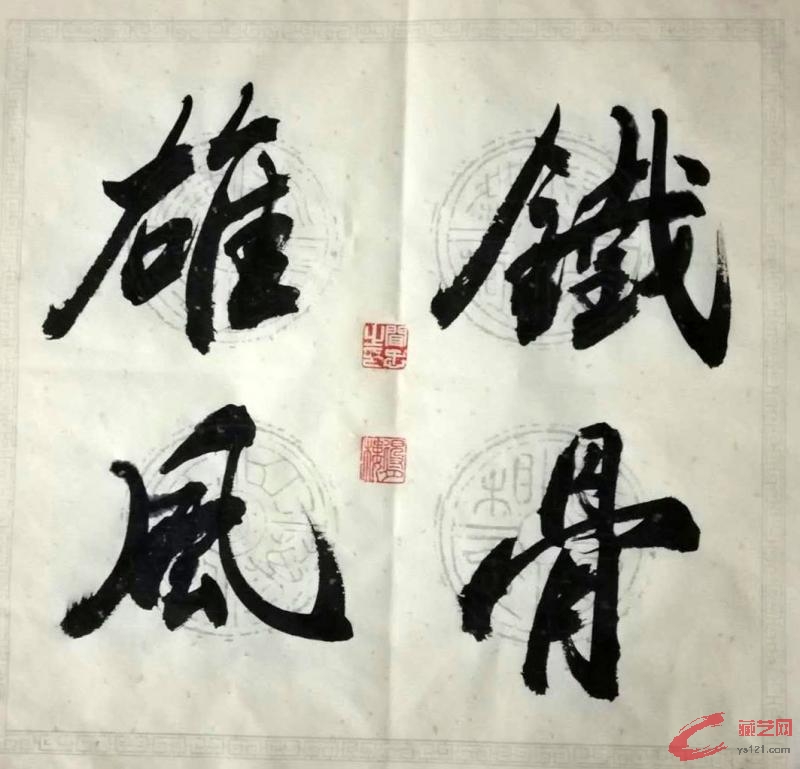 鐵骨
雄風
藏艺网
ys121.com